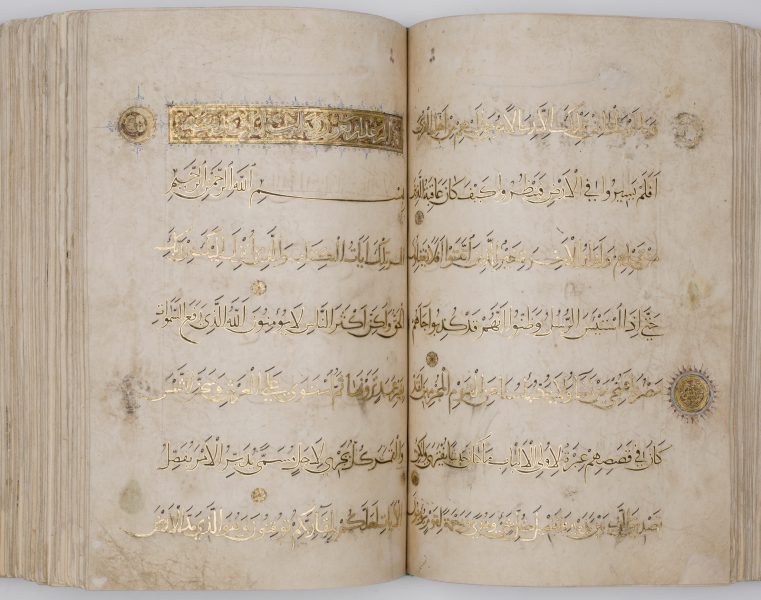 وما ارسلنا من قبلك الا رجالا نوحي اليهم من اهل القرى
افلم يسيروا في الارض فينظروا كيف كان عاقبة الذين
من قبلهم ولدار الاخرة خير للذين اتقوا افلا تعقلون
حتى اذا استيئس الرسل وظنوا انهم قد كذبوا جاءهم
نصرنا فنجي من نشاء ولا يرد باسنا عن القوم المجرمين لقد
كان في قصصهم عبرة لاولي الالباب ما كان حديثا يفترى ولكن
تصديق الذي بين يديه وتفصيل كل شيء وهدى ورحمة لقوم يؤمنون
بسم الله الرحمن الرحيم
المر تلك ايات الكتاب والذي انزل اليك من ربك
الحق ولكن اكثر الناس لا يؤمنون الله الذي رفع السموات
بغير عمد ترونها ثم استوى على العرش وسخر الشمس
والقمر كل يجري لاجل مسمى يدبر الامر يفصل
الايات لعلكم بلقاء ربكم توقنون وهو الذي مد الارض